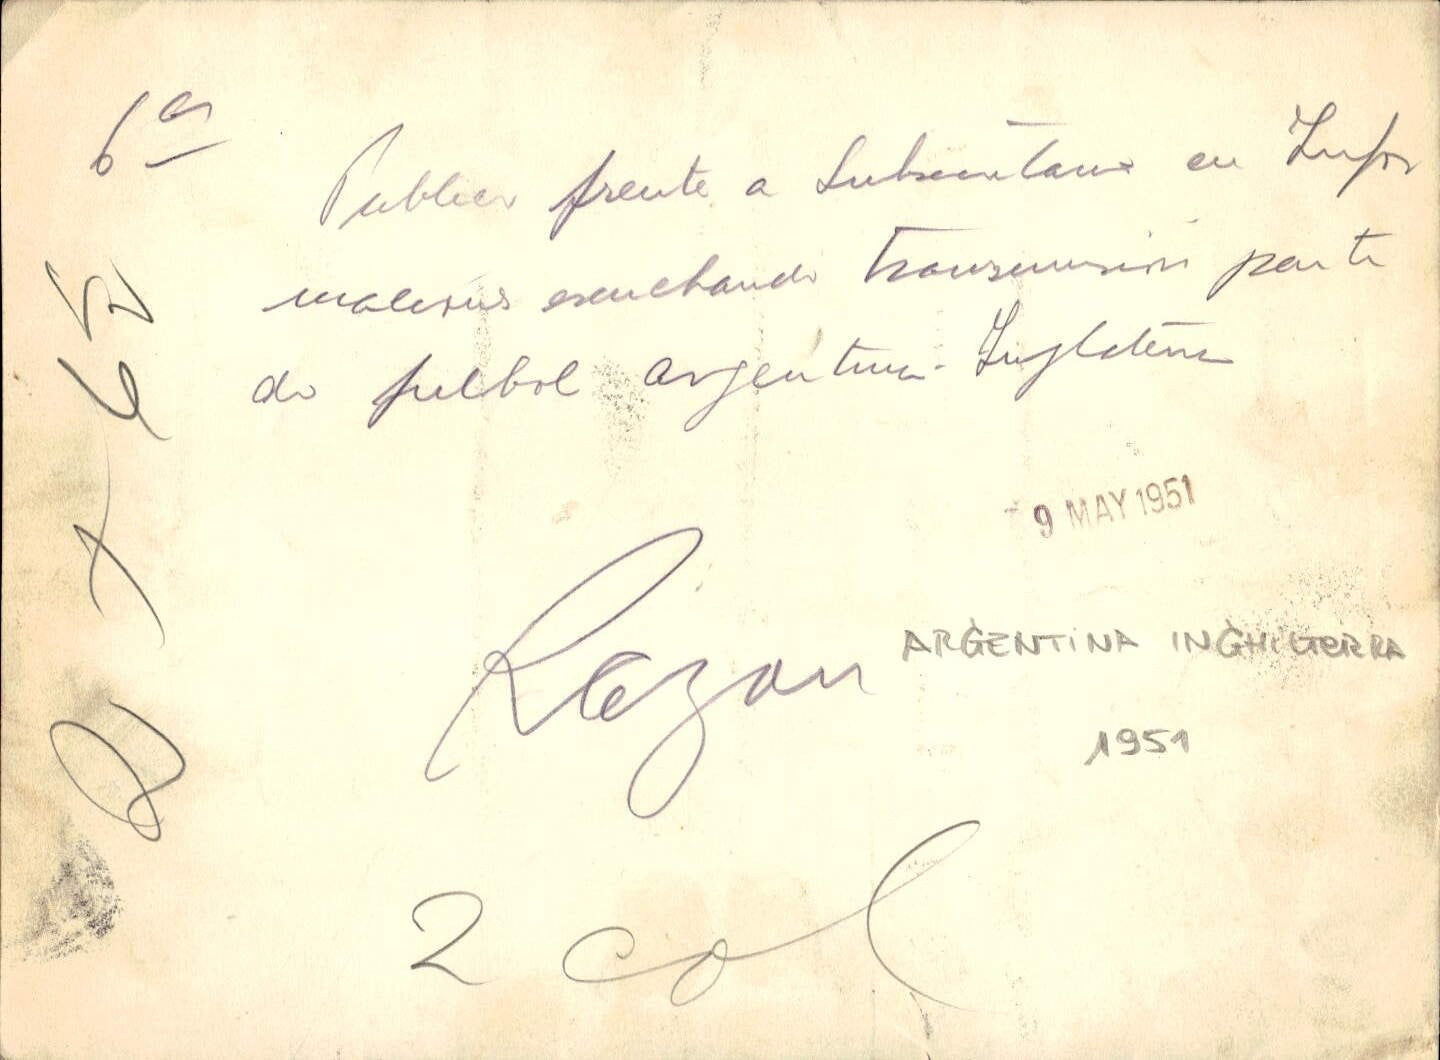 6ª
Publico frente a Subsecretaria en Infor
maciones escuchando transmision parti
do futbol Argentina-Inglaterra
- 9 MAY 1951
Razon
ARGENTINA INGHILTERRA
1951
2 col